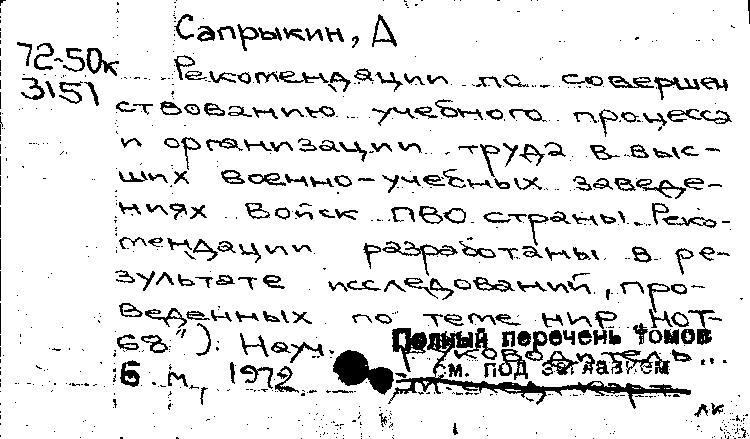 Сапрыкин, А
72-50к
3151
Рекомендации по совершен
ствованию учебного процесса
и организации труда в выс-
ших военно-учебных заведе-
ниях Войск ПВО страны. Реко-
мендации разработаны в ре-
зультате исследований, про-
веденных по теме НИР НОТ-
68"). Науч. руководитель...
Полный перечень томов
см. под заглавием
Б. м., 1972
лк